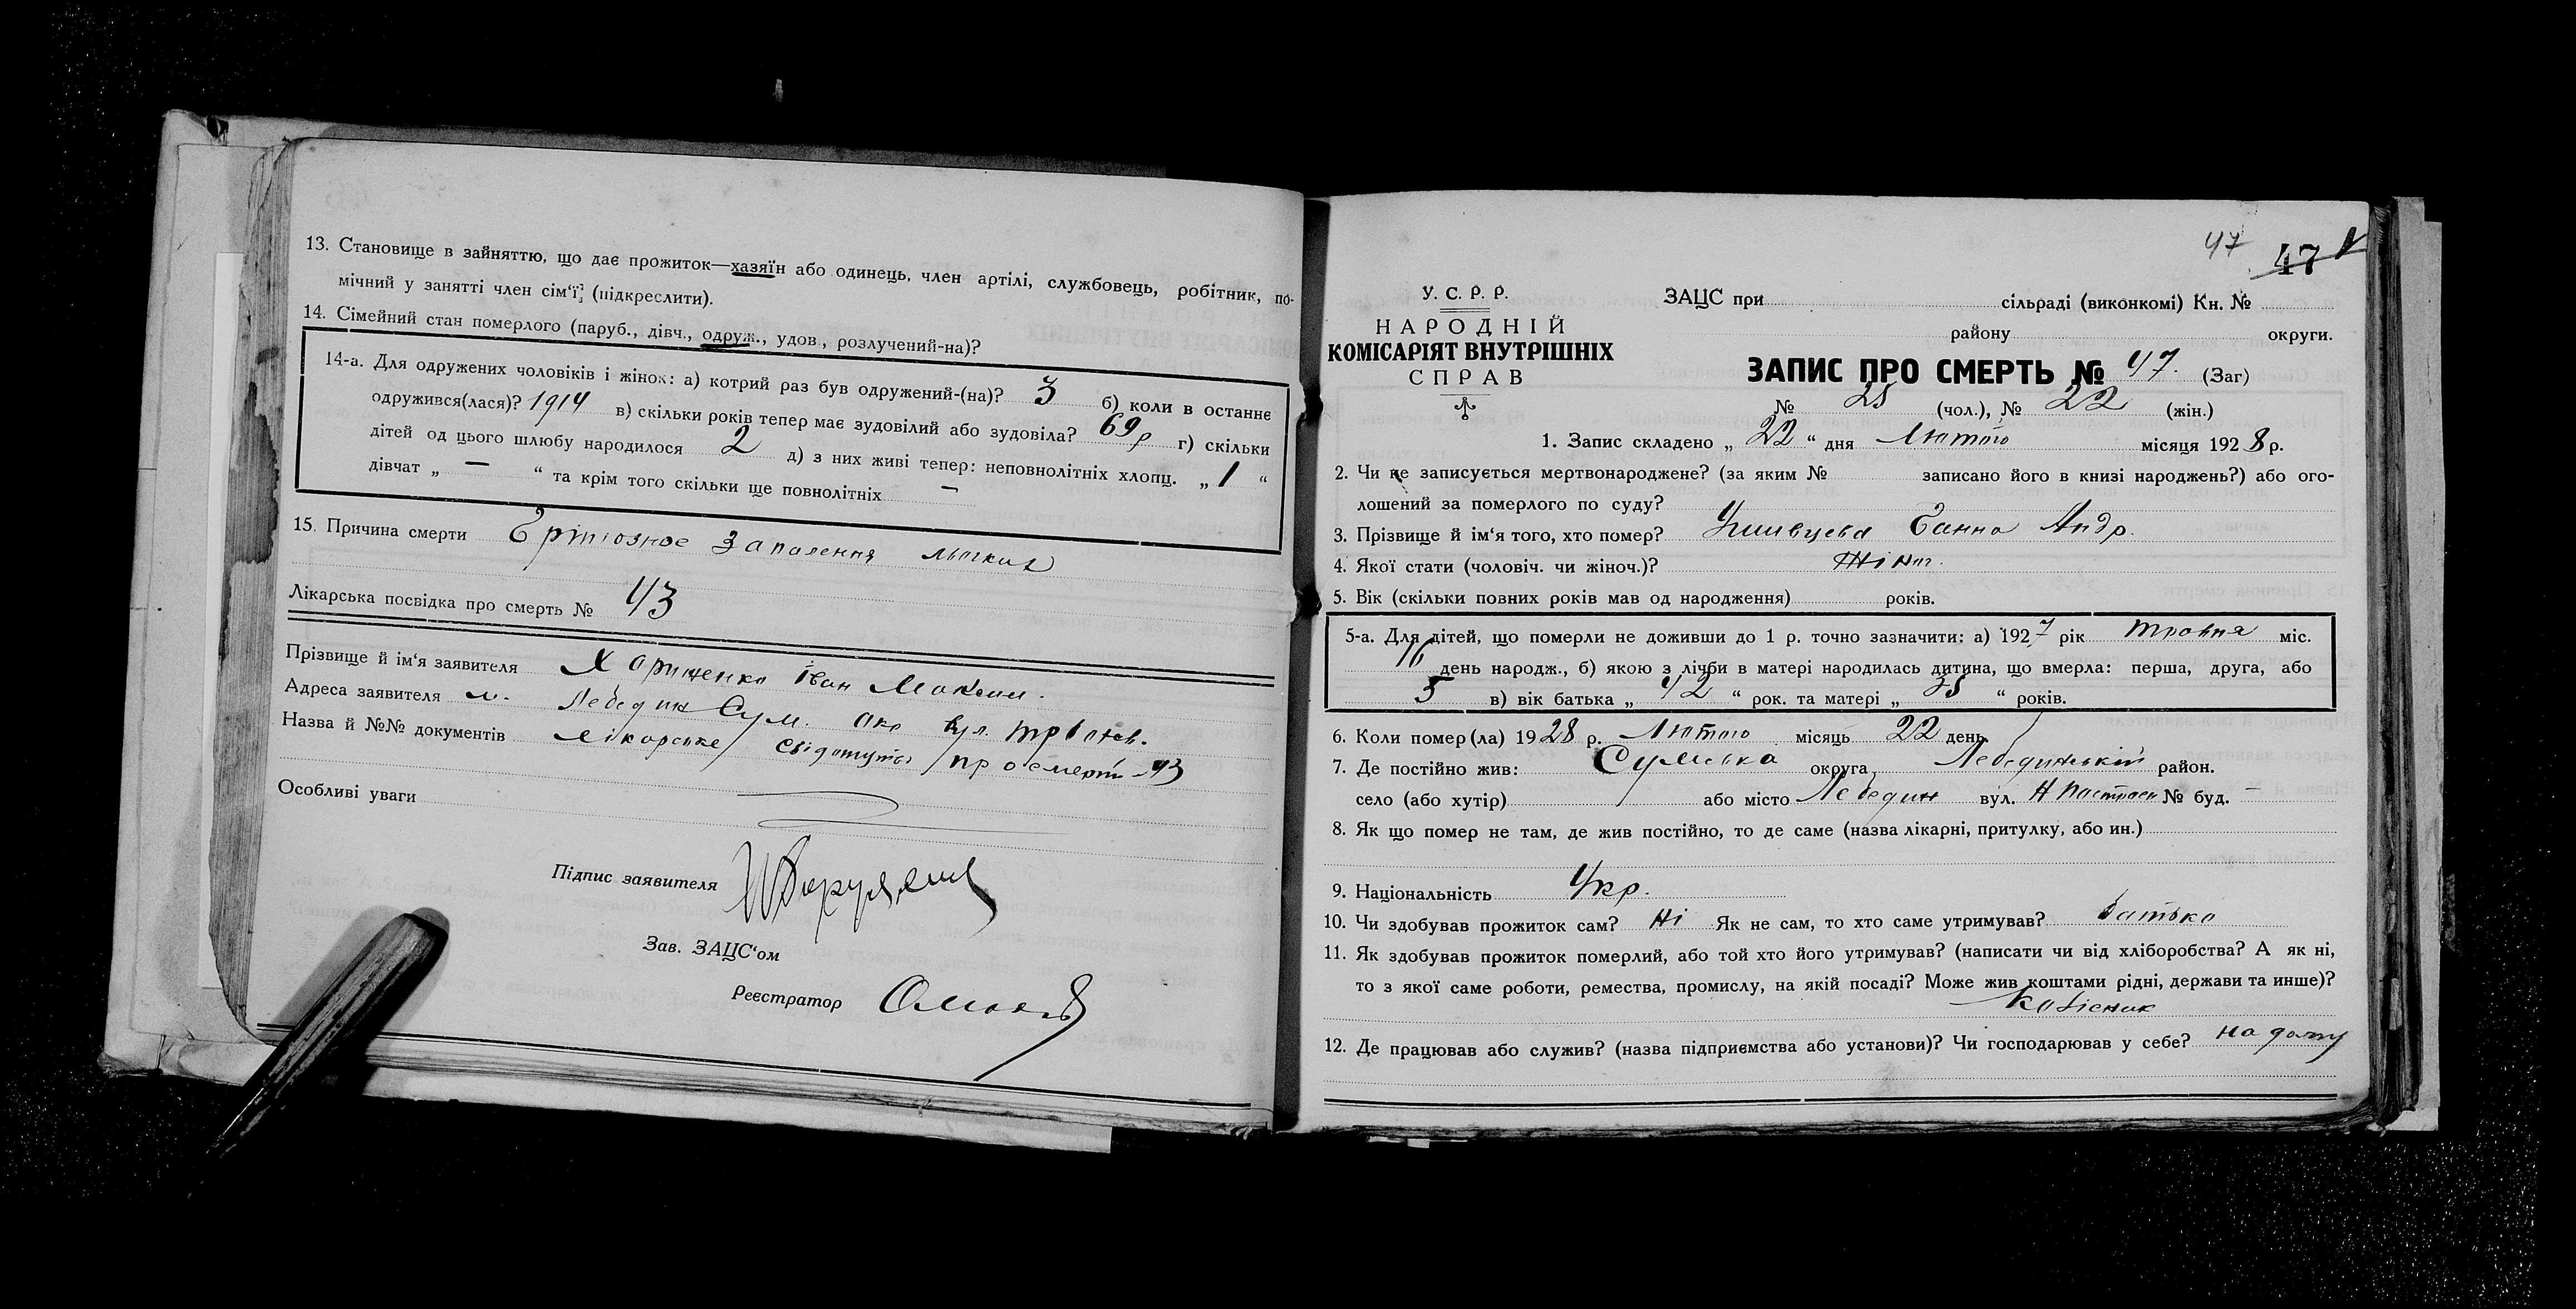 13. Становище в зайняттю, що дає прожиток—хазяїн або одинець, член артілі, службовець, робітник, по-
мічний у занятті член сім'ї (підкреслити).
14. Сімейний стан померлого (паруб., дівч., одруж., удов., розлучений-на)?
14-а. Для одружених чоловіків і жінок: а) котрий раз був одружений-(на)? 3 б) коли в останнє
одружився(лася)? 1914 в) скільки років тепер має зудовілий або зудовіла? 69 р г) скільки
дітей од цього шлюбу народилося 2 д) з них живі тепер: неповнолітніх хлопц. „ 1 “
дівчат „ — “ та крім того скільки ще повнолітніх —
15. Причина смерти запалення
Лікарська посвідка про смерть № 43
Прізвище й ім'я заявителя Іван Максим.
Адреса заявителя м. Лебедин Сум. окр вул.
Назва й №№ документів лікарське про смерть 43
Особливі уваги
Підпис заявителя
Зав. ЗАЦС'ом
Реєстратор
47 47
У. С. Р. Р.
НАРОДНІЙ
КОМІСАРІЯТ ВНУТРІШНІХ
СПРАВ
ЗАЦС при сільраді (виконкомі) Кн. №
району округи.
ЗАПИС ПРО СМЕРТЬ № 47. (Заг)
№ 25 (чол.), № 22 (жін.)
1. Запис складено „ 22 “ дня Лютого місяця 1928 р.
2. Чи не записується мертвонароджене? (за яким № записано його в книзі народжень?) або ого-
лошений за померлого по суду?
3. Прізвище й ім'я того, хто помер? Ганна Андр.
4. Якої стати (чоловіч. чи жіноч.)? жіноч.
5. Вік (скільки повних років мав од народження) років.
5-а. Для дітей, що померли не доживши до 1 р. точно зазначити: а) 1927 рік травня міс.
16 день народж., б) якою з лічби в матері народилась дитина, що вмерла: перша, друга, або
5 в) вік батька „ 42 “ рок. та матері „ 38 “ років.
6. Коли помер(ла) 1928 р. Лютого місяць 22 день.
7. Де постійно жив: Сумська округа Лебединський район.
село (або хутір) або місто Лебедин вул. № буд. —
8. Як що помер не там, де жив постійно, то де саме (назва лікарні, притулку, або ин.)
9. Національність Укр.
10. Чи здобував прожиток сам? Ні Як не сам, то хто саме утримував? батько
11. Як здобував прожиток померлий, або той хто його утримував? (написати чи від хліборобства? А як ні,
то з якої саме роботи, ремества, промислу, на якій посаді? Може жив коштами рідні, держави та инше)?
12. Де працював або служив? (назва підприємства або установи)? Чи господарював у себе? на дому